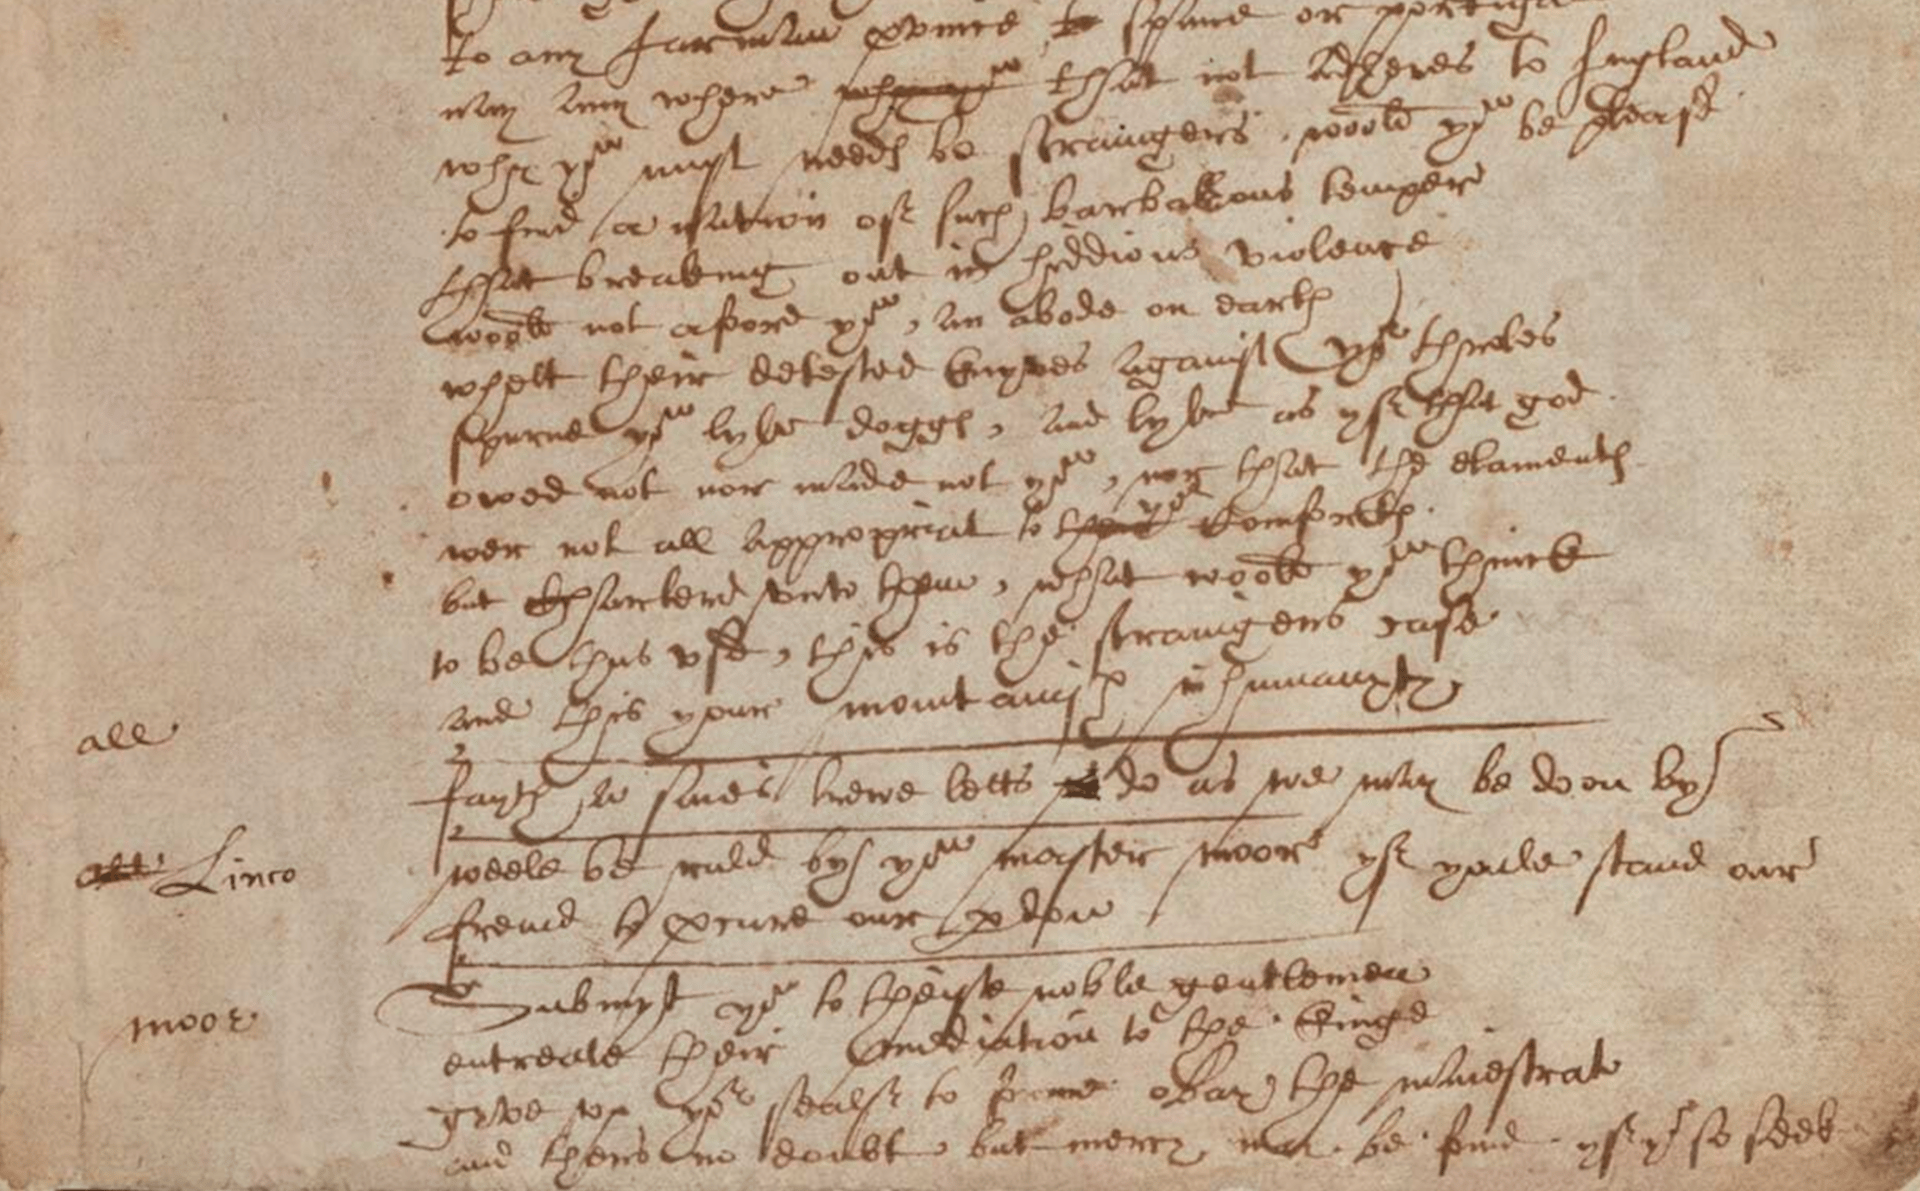 to any Jarman province to spane or portigall
nay any where why yoᵘ that not adheres to Ingland
why yoᵘ must needs be straingers. woold yoᵘ be pleasd
to find a nation of such barbarous temper
that breaking out in hiddious violence
woold not afoord yoᵘ, an abode on earth
whett their detested knyves against yoʳ throtes
spurne yoᵘ lyke doggs, and lyke as yf that god
owed not nor made not yoᵘ, nor that the elaments
wer not all appropriat to yoʳ comforts.
but charterd vnto them, what woold yoᵘ thinck
to be thus vsd, this is the straingers case
all and this your mountanish inhumanyty
fayth a saies trewe letts do as we may be doon by
Linco weele be ruld by yoᵘ master moor yf youle stand our
freind to procure our pardon
moor Submyt yoᵘ to theise noble gentlemen
entreate their mediation to the kinge
gyve vp yoʳ sealf to forme obay the maiestrate
and thers no doubt, but mercy may be found yf yoᵘ so seek